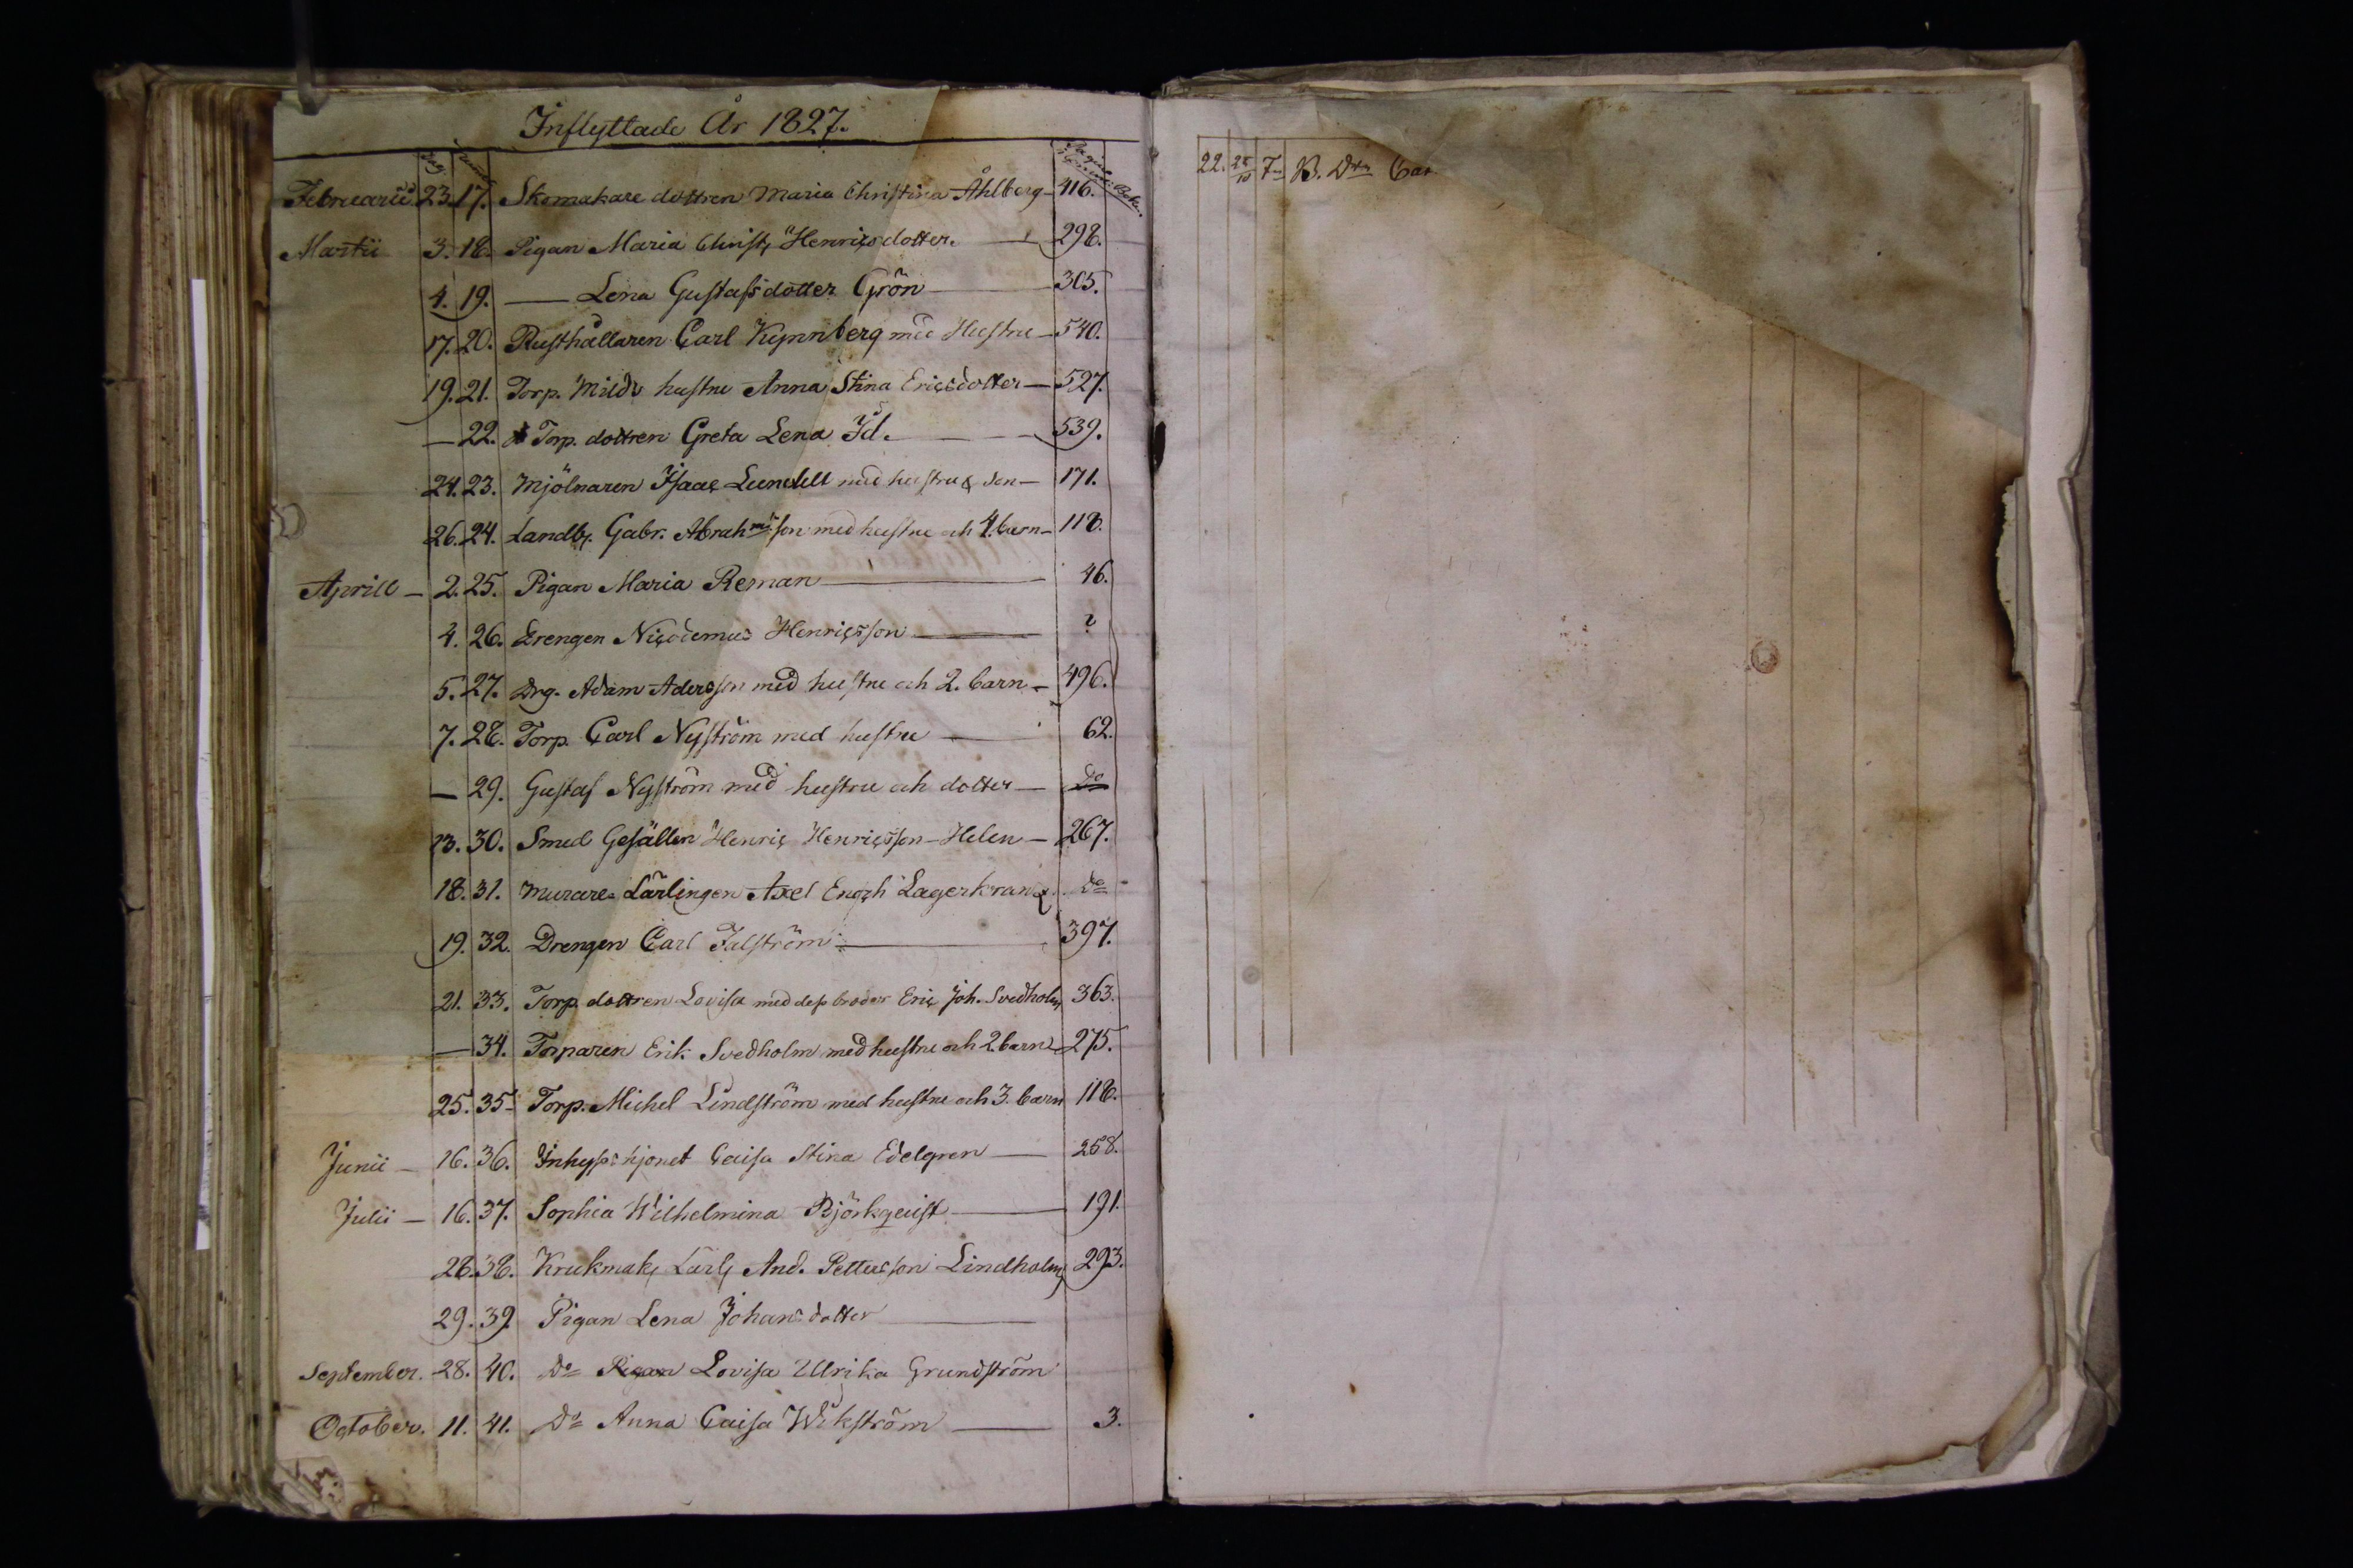 Inflyttade År 1827.
Februarii 23. 17. Skomakare dottren Maria Christina Åhlberg 416.
Martii 3. 18. Pigan Maria Christ, Henricsdotter. 298.
4. 19. — Lena Gustafsdotter Grön 305.
17. 20. Rusthållaren Carl Kynnberg med Hustru 540.
19. 21. Torp. Milds hustru Anna Stina Ericsdotter 527.
— 22. Torp. dottren Greta Lena Id. 539.
24. 23. Mjölnaren Isaac Lundell med hustru & son 171.
26. 24. Landb. Gabr. Abrahmsson med hustru och 4. barn 118.
Aprill — 2. 25. Pigan Maria Reman 46.
4. 26. Drengen Nicodemus Henricsson ?
5. 27. Drg. Adam Adersson med hustru och 2. barn 496.
7. 28. Torp. Carl Nyström med hustru 62.
— 29. Gustaf Nyström med hustru och dotter Do
13. 30. Smed Gesällen Henric Henricsson Helen 267.
18. 31. Murare Lärlingen Axel Enoch Lagerkrantz do
19. 32. Drengen Carl Falström 397.
21. 33. Torp. dottren Lovisa med dess broder Eric Joh. Svedholm 363.
— 34. Torparen Erik Svedholm med hustru och 2 barn 275.
25. 35. Torp. Michel Lindström med hustru och 3. barn 118.
Junii — 16. 36. Inhyses hjonet Caisa Stina Edelgren 258.
Julii — 16. 37. Sophia Wilhelmina Björkqvist 191.
28. 38. Krukmak. Lärl. And. Pettersson Lindholm 293.
29. 39. Pigan Lena Johansdotter
September. 28. 40. Do Pigan Lovisa Ullrika Grundström
October. 11. 41. Do Anna Caisa Wikström 3.
22. 28/10 7 B. Dtn Car